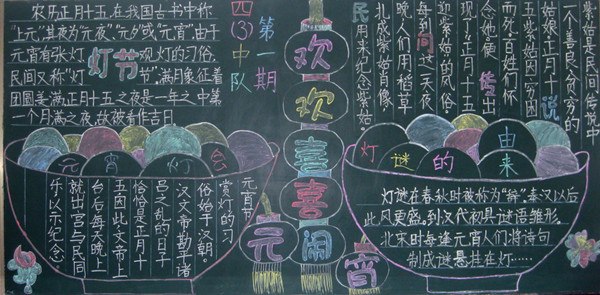 农历正月十五,在我国古书中称
“上元”,其夜为“元夜”“元夕”或“元宵”,由于
元宵有张灯、观灯的习俗,
民间又称“灯节”,满月象征着
团圆美满,正月十五之夜是一年之中第
一个月满之夜,故被看作吉日
灯节
四(3)中队
第一期
欢欢喜喜闹元宵
民间传说
紫姑是民间传说中
一个善良、贫穷的
姑娘。正月十
五,紫姑因穷困
而死。百姓们怀
念她,便出
现了“正月十五
迎紫姑”的风俗
每到这一天夜
晚,人们用稻草
扎成紫姑肖像。
用来纪念紫姑。
元宵灯会
元宵节
赏灯的习
俗始于汉朝。
汉文帝勘平诸
吕之乱的日子
恰恰是正月十
五,因此,文帝上
台后,每天晚上
就出宫与民同
乐以示纪念。
灯谜的由来
灯谜在春秋时被称为“辞”,秦汉以后
此风更盛。到汉代初具谜语雏形。
北宋时每逢元宵人们将诗句
制成谜悬挂在灯……